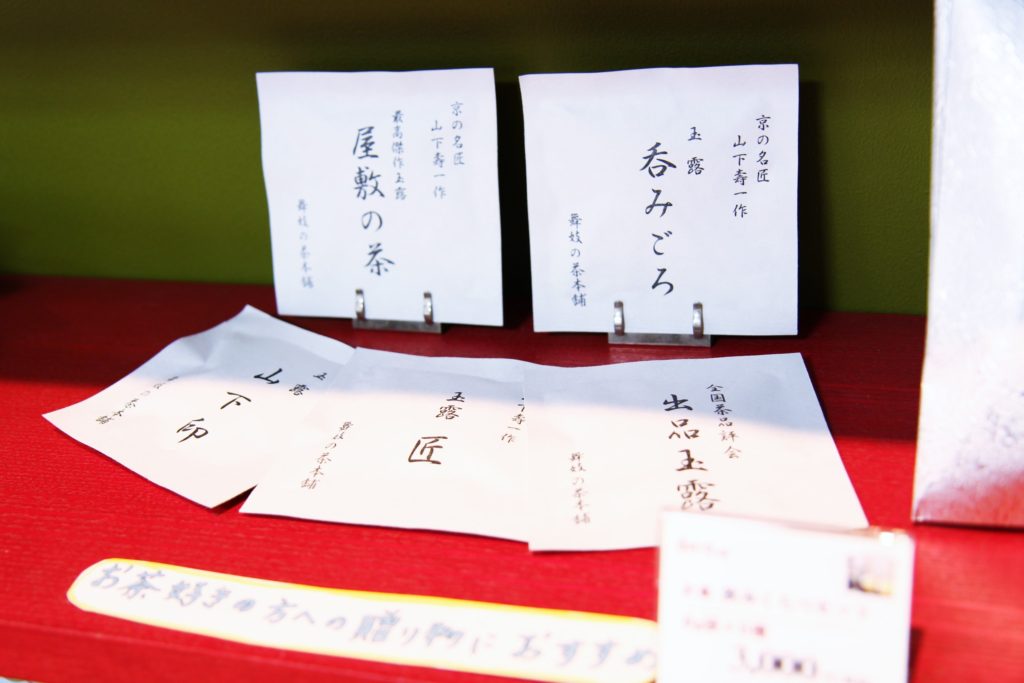 京の名匠
山下寿一作
最高傑作玉露
屋敷の茶
舞妓の茶本舗
京の名匠
山下寿一作
玉露
呑みごろ
舞妓の茶本舗
玉露
山下印
舞妓の茶本舗
寿一作
玉露
匠
舞妓の茶本舗
全国茶品評会
出品玉露
舞妓の茶本舗
お茶好きの方への贈り物におすすめ
3,000